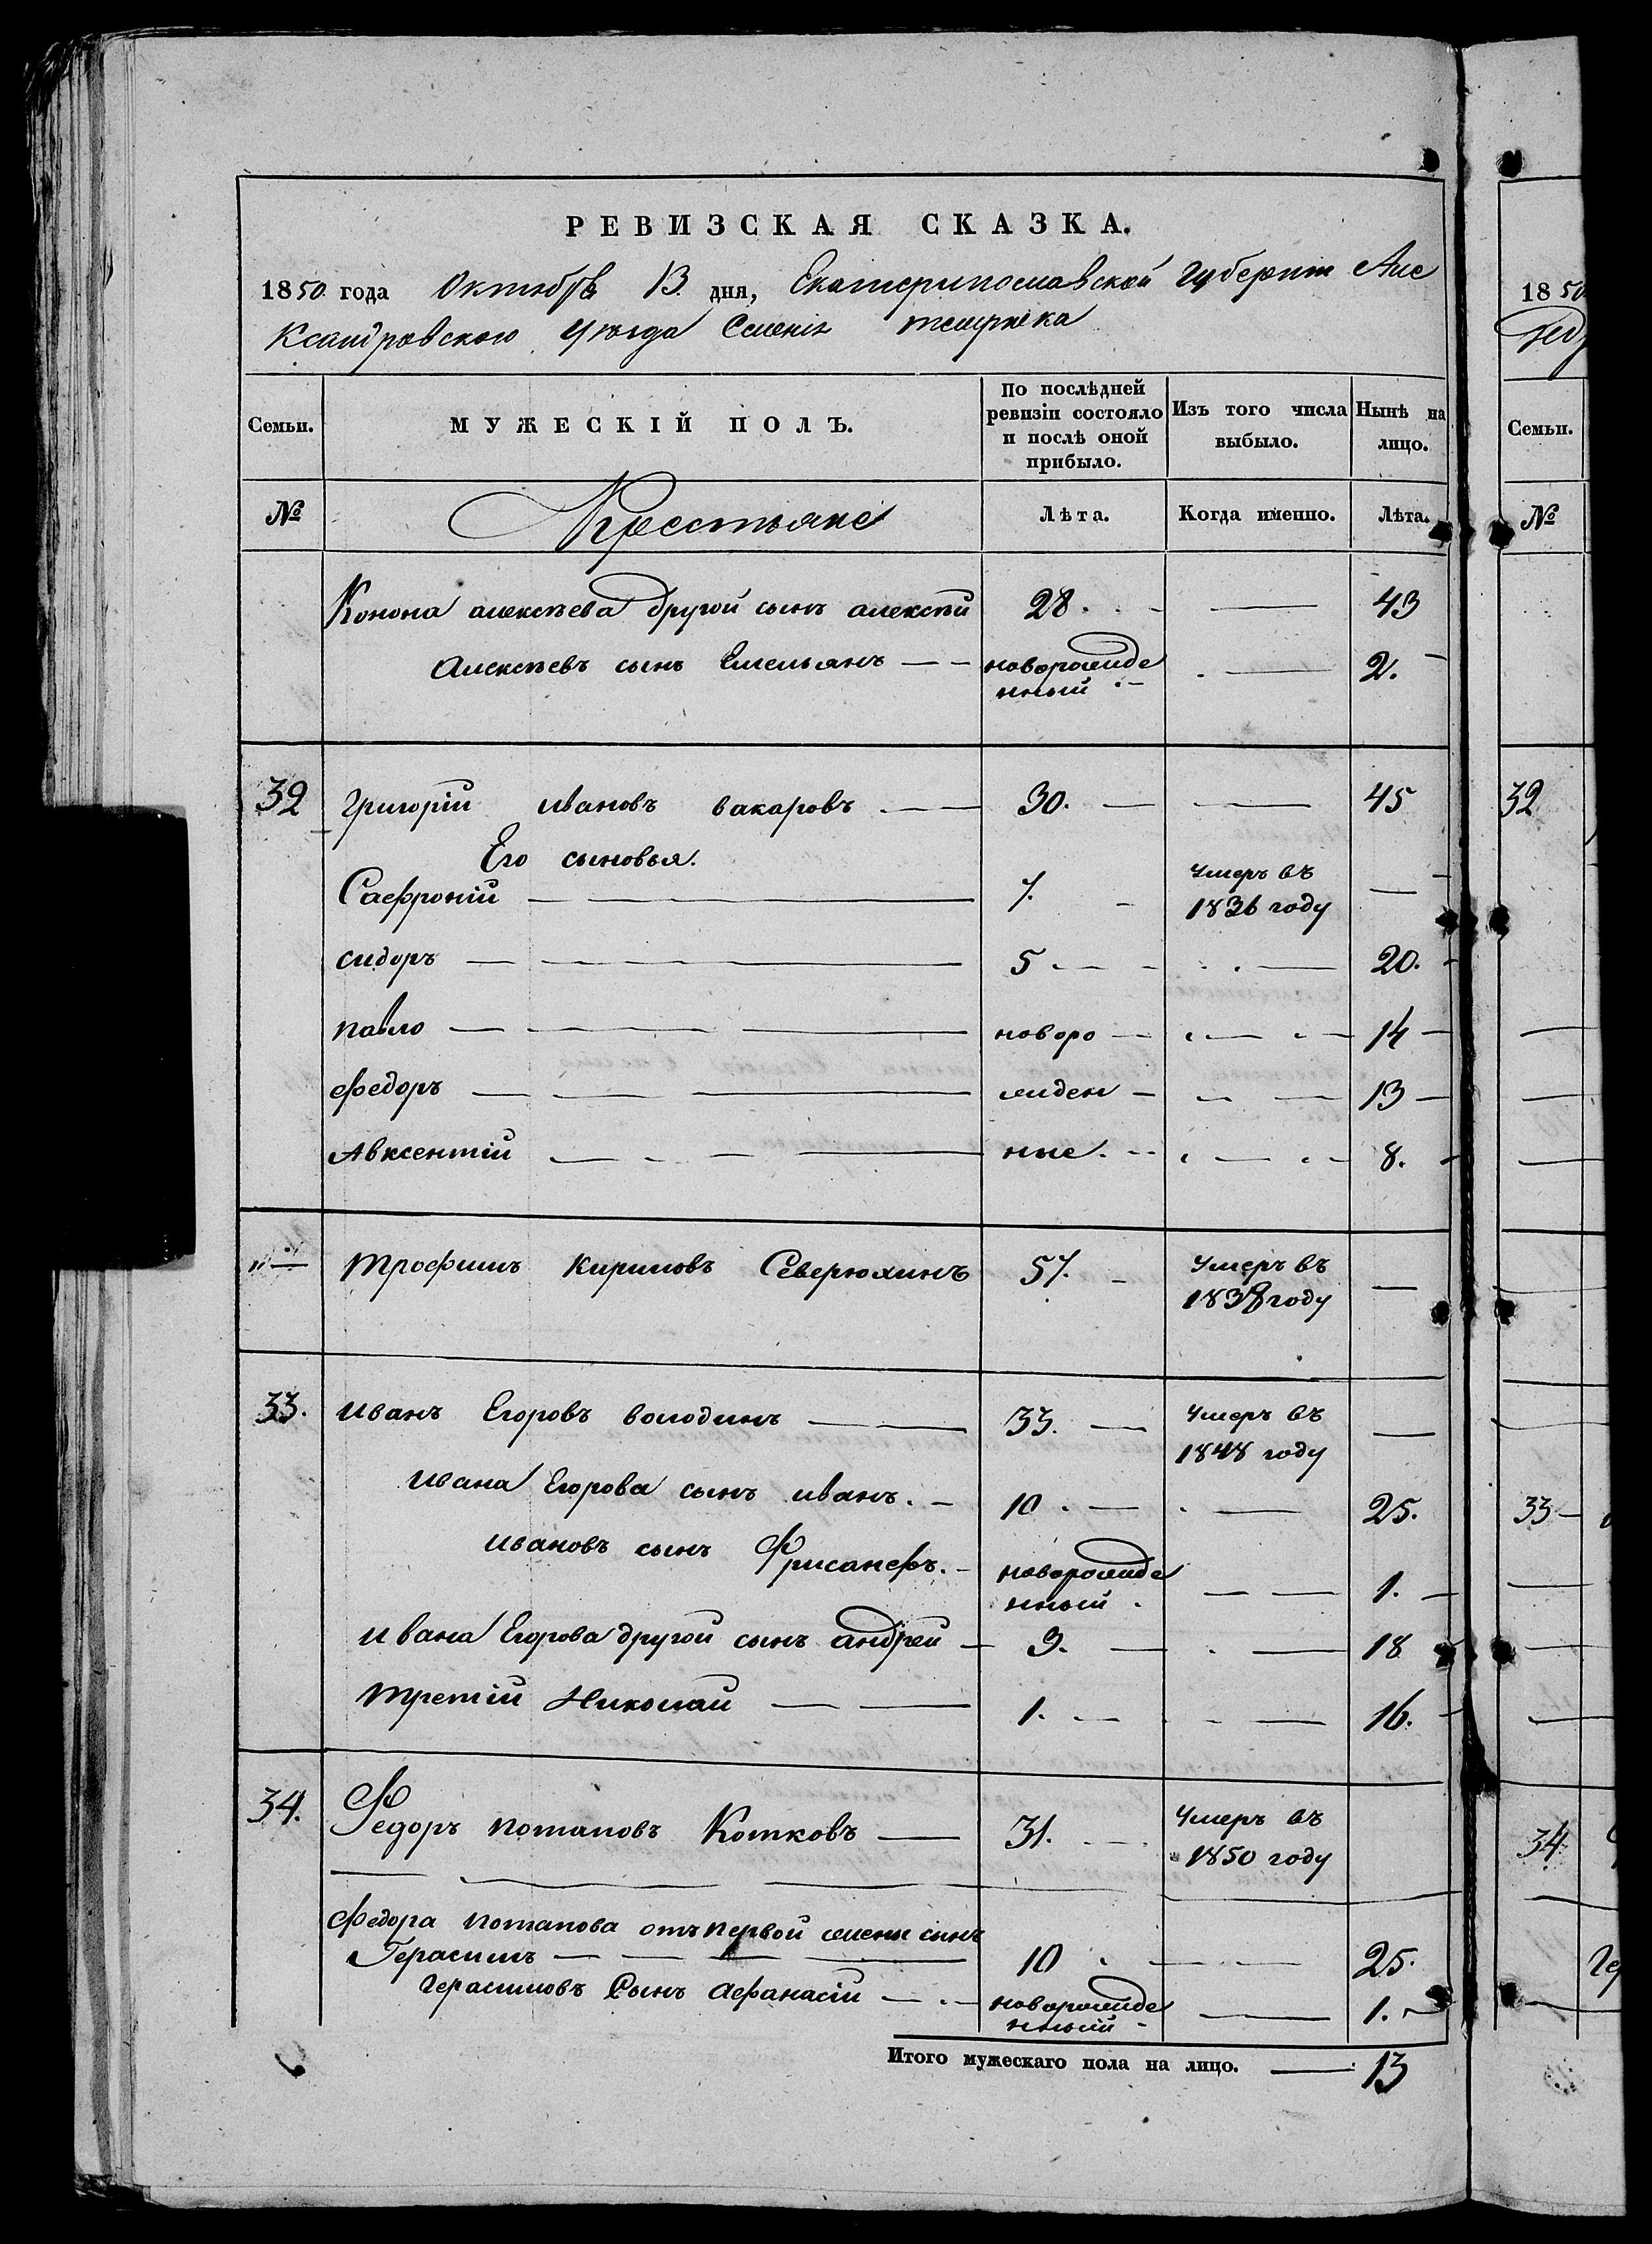 РЕВИЗСКАЯ СКАЗКА.
1850 года Октября 13 дня, Екатеринославской Губернии Але
ксандровского уѣзда Селенія
Семьи. МУЖЕСКІЙ ПОЛЪ. По послѣдней ревизіи состояло и послѣ оной прибыло. Изъ того числа выбыло. Нынѣ на лицо.
№ Крестьяне Лѣта. Когда именно. Лѣта.
Конона алексѣева другой сынъ алексѣй 28. — 43
Алексѣевъ сынъ Емельянъ — — новорожде нный — 2.
32 Григорій ивановъ вакаровъ — — 30. — — 45
Его сыновья.
Сафроній — 7. Умеръ въ 1836 году —
сидоръ — 5 — 20.
павло — новоро — 14
федоръ — жден — 13
Авксентій — ные. — 8.
" — трофимъ кириловъ Северюхинъ 57. Умеръ въ 1838 году —
33. иванъ Егоровъ володинъ — 33. — Умеръ въ 1848 году —
ивана Егорова сынъ иванъ. — 10. — 25.
ивановъ сынъ Фрисанфъ. — новорожде нный — 1.
ивана Егорова другой сынъ андрей — 3. — 18
третій Николай — 1. — 16.
34. Федоръ потаповъ Котковъ — 31. Умеръ въ 1850 году
федора потапова отъ первой жены сынъ
Герасимъ — 10 — 25.
Герасимовъ Сынъ Афанасій — новорожде нный — 1.
Итого мужескаго пола на лицо. — 13
1850
Семьи.
№
32
33 —
34
Гер